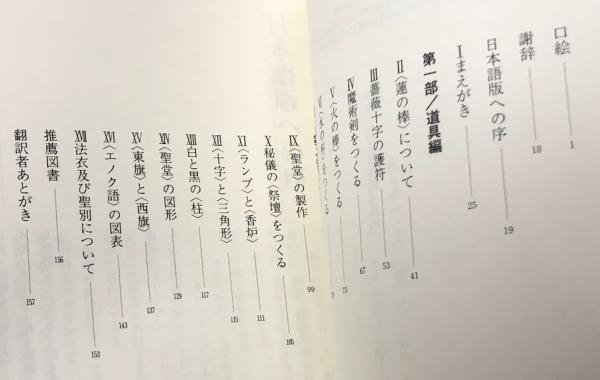 口絵 1
謝辞 18
日本語版への序 19
Ⅰまえがき 25
第一部/道具編
Ⅱ〈蓮の棒〉について 41
Ⅲ薔薇十字の護符 53
Ⅳ魔術剣をつくる 67
Ⅴ〈火の棒〉をつくる 73
をつくる
Ⅸ〈聖堂〉の製作 99
Ⅹ秘儀の〈祭壇〉をつくる 105
Ⅺ〈ランプ〉と〈香炉〉 111
Ⅻ〈十字〉と〈三角形〉 115
XIII白と黒の〈柱〉 117
XIV〈聖堂〉の図形 129
XV〈東旗〉と〈西旗〉 137
XVI〈エノク語〉の図表 143
XVII法衣及び聖別について 153
推薦図書 156
翻訳者あとがき 157